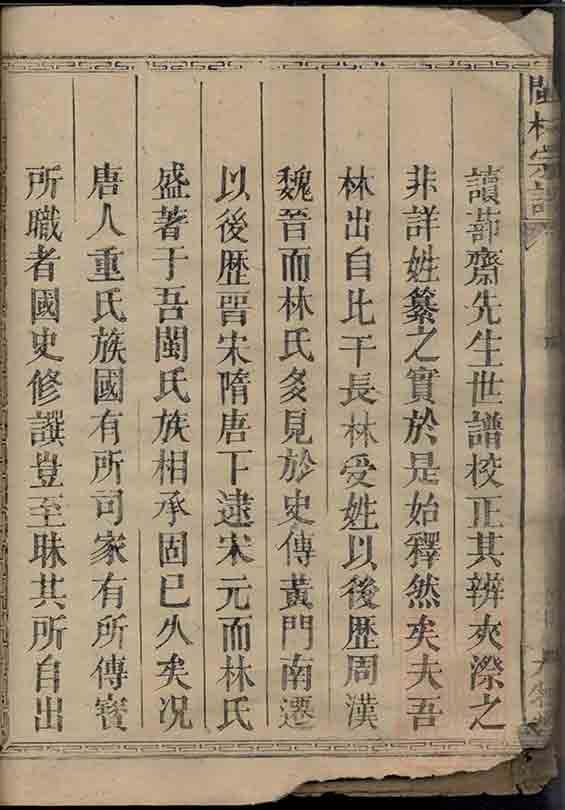 閩林宗譜
讀蔀齋先生世譜校正其辨夾漈之
非詳姓纂之實於是始釋然矣夫吾
林出自比干長林受姓以後歴周漢
魏晉而林氏多見於史傳黃門南遷
以後歴晉宋隋唐下逮宋元而林氏
盛著于吾閩氏族相承固已久矣况
唐人重氏族國有所司家有所傳寳
所職者國史修譔豈至昧其所自出